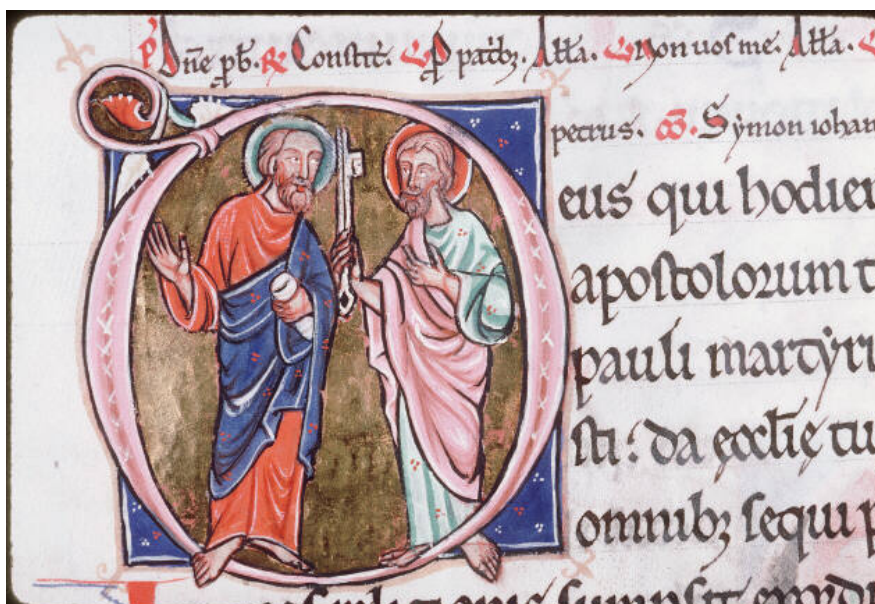 Dne ꝓb. ℟ Constit̄. Ꝑ patͥbꝫ. All̄a. Non uos me. All̄a.
petrus. Co. Symon iohan
eus qui hodier
apostolorum t
pauli martyri
sti: da eccl̄ie tu
omnibꝫ sequi p
sumpsit exordi